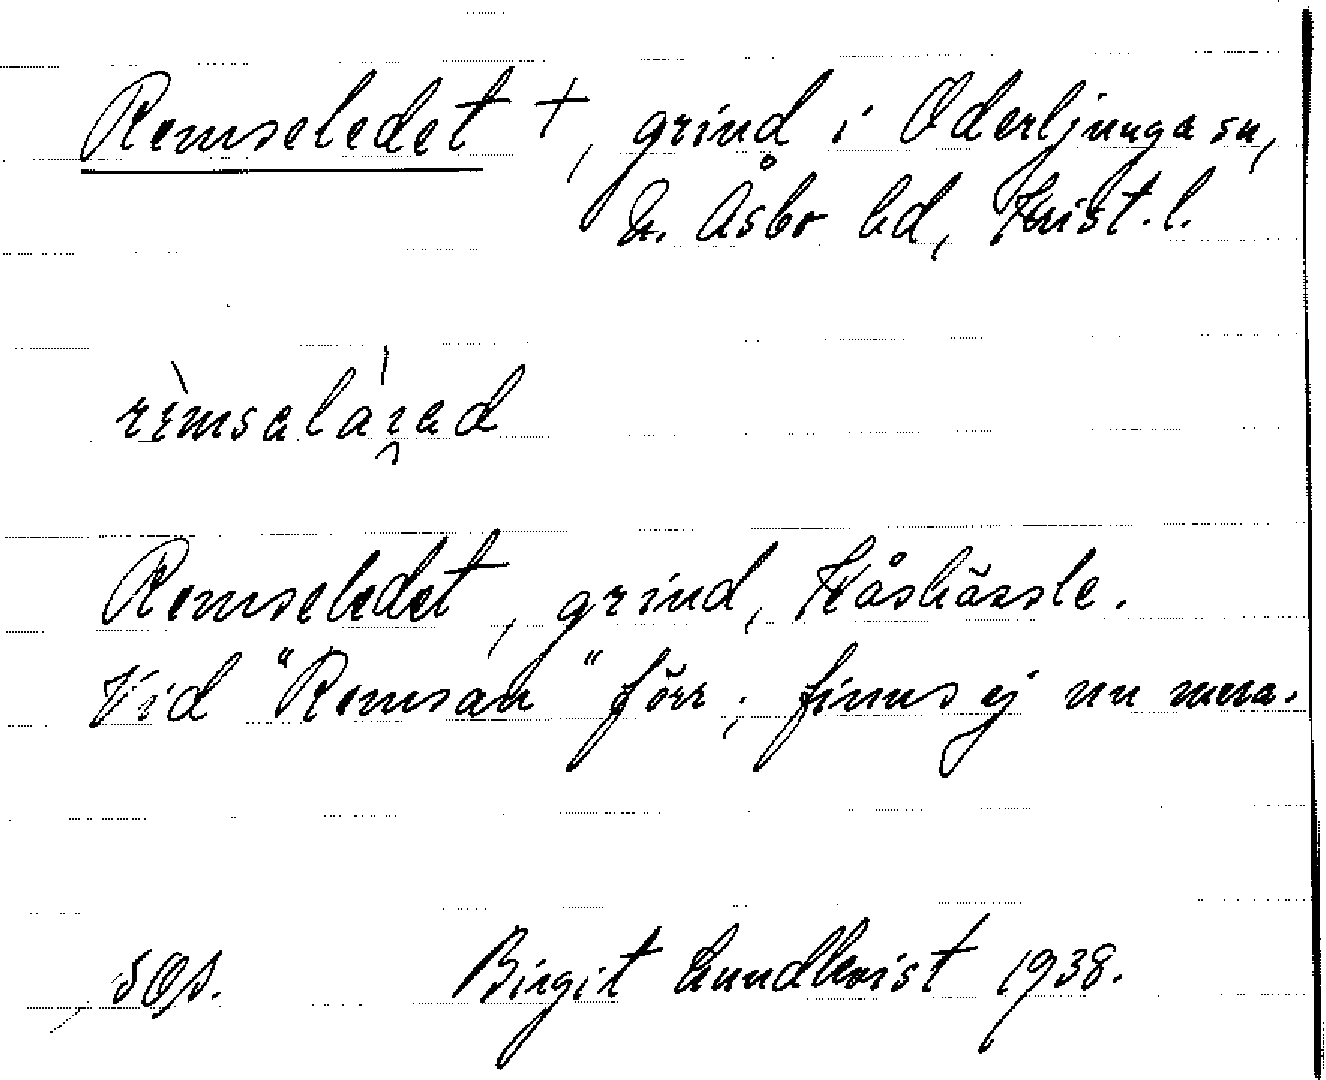 Remseledet +, grind i Oderljunga sn,
N. Åsbo hd, Krist. l.
rìmsalái̯ad
Remseledet, grind, Kåshässle.
Vid "Remsan" förr; finns ej nu mera.
Birgit Lundkvist 1938.